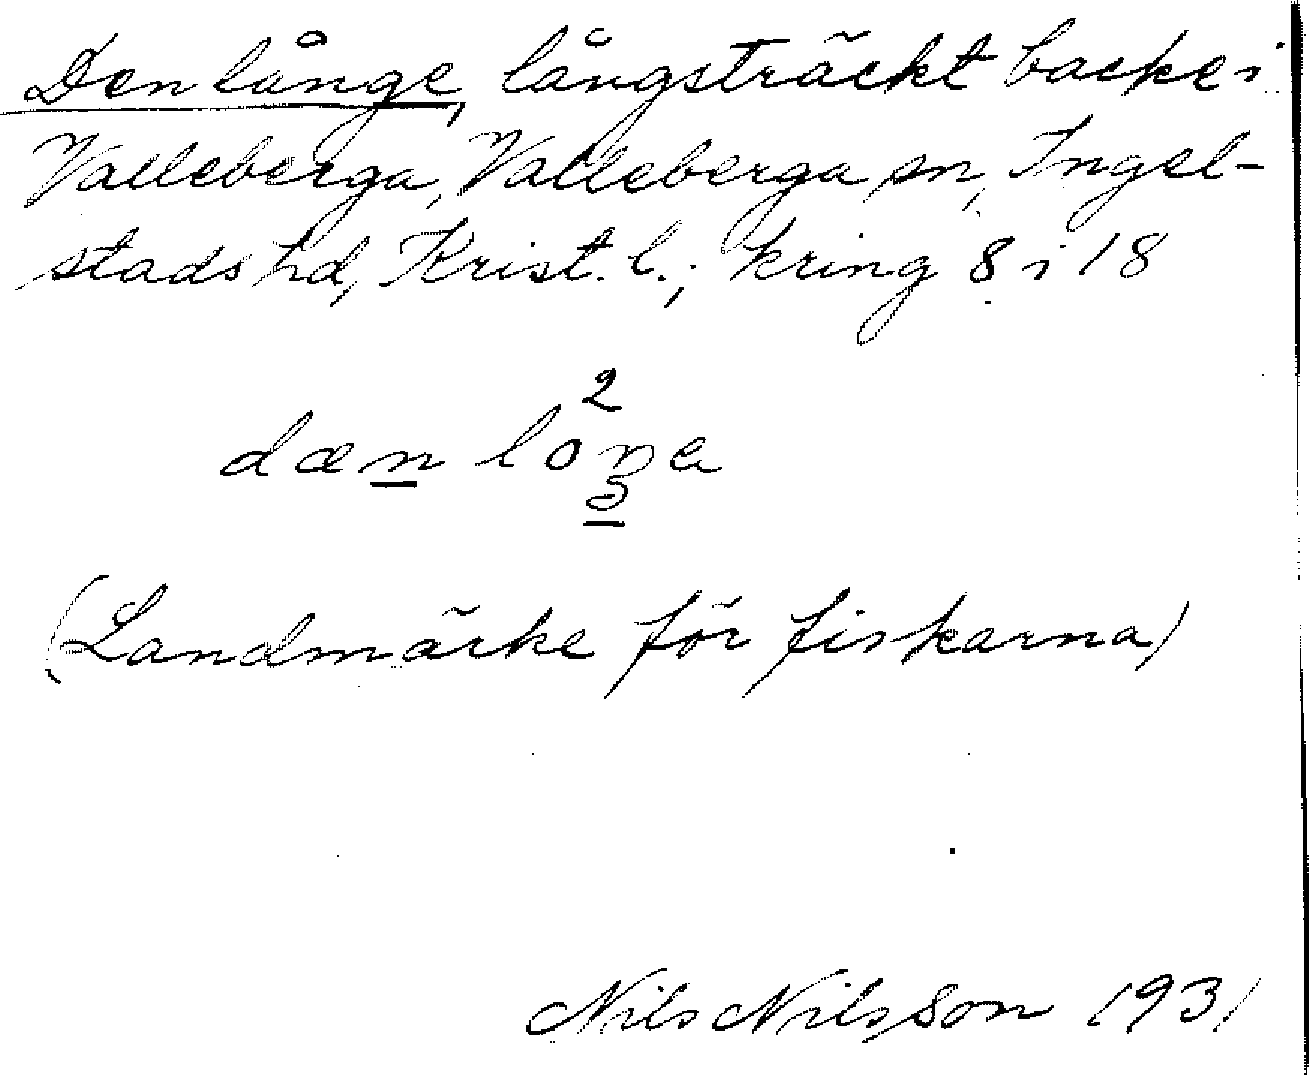 Den långe, långsträckt backe i
Valleberga, Valleberga sn, Ingel-
stads hd, Krist. l.; kring 8 i 18
2
dæn loŋa
(Landmärke för fiskarna)
Nils Nilsson 1931